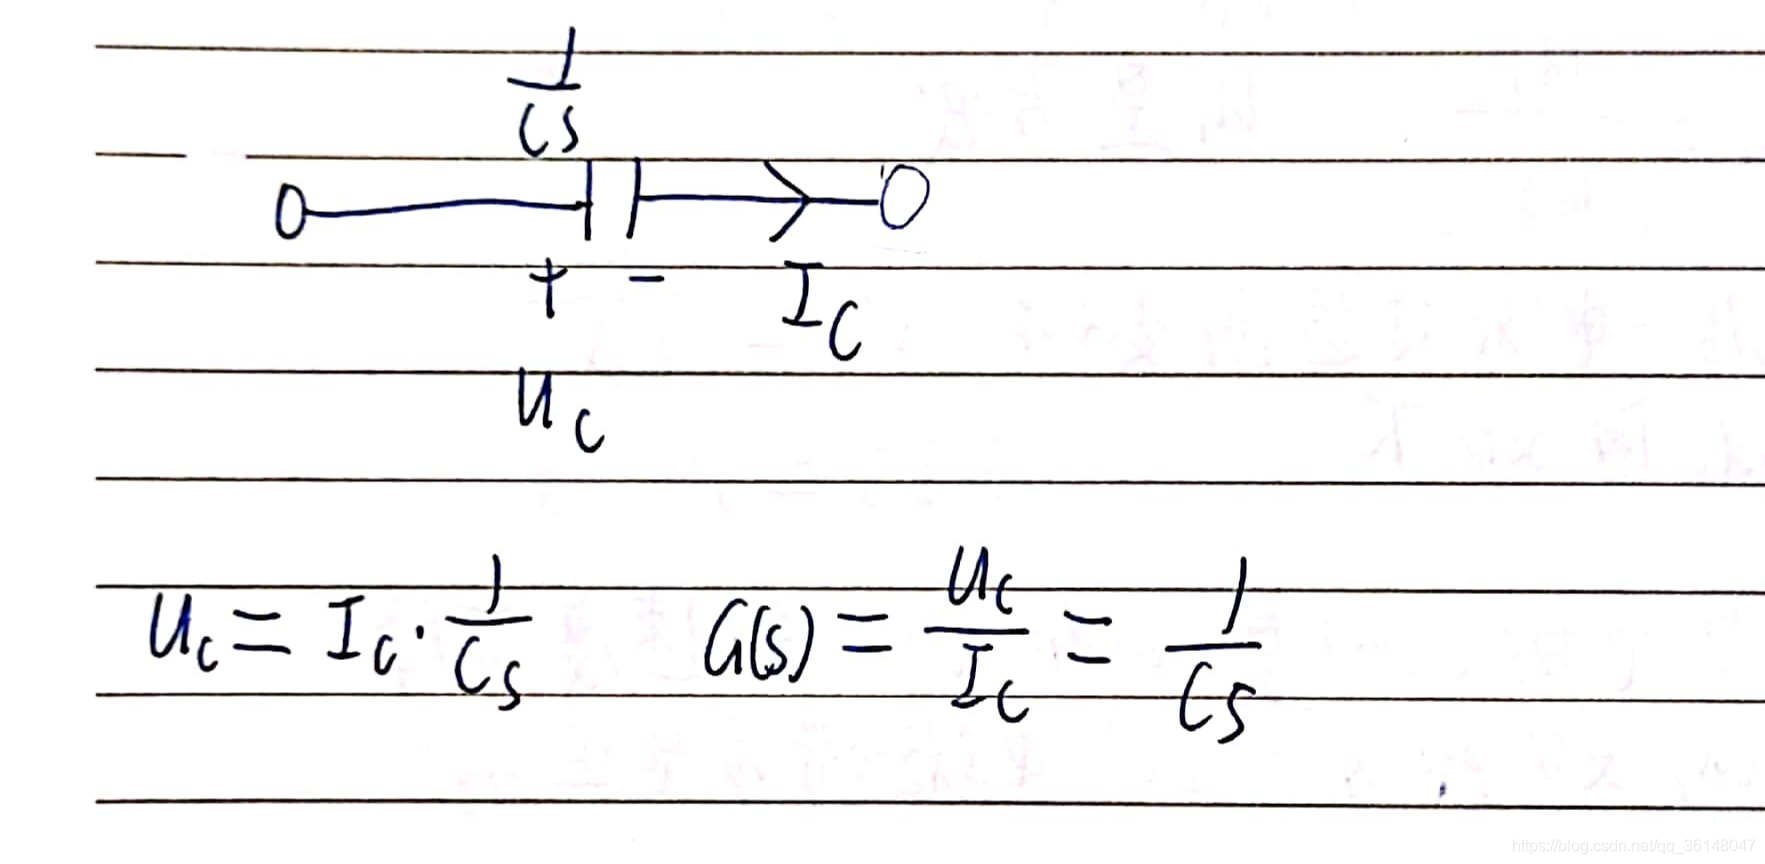 1/Cs
+ - I_C
U_C
U_C = I_C · 1/Cs G(s) = U_C/I_C = 1/Cs
https://blog.csdn.net/qq_36148047